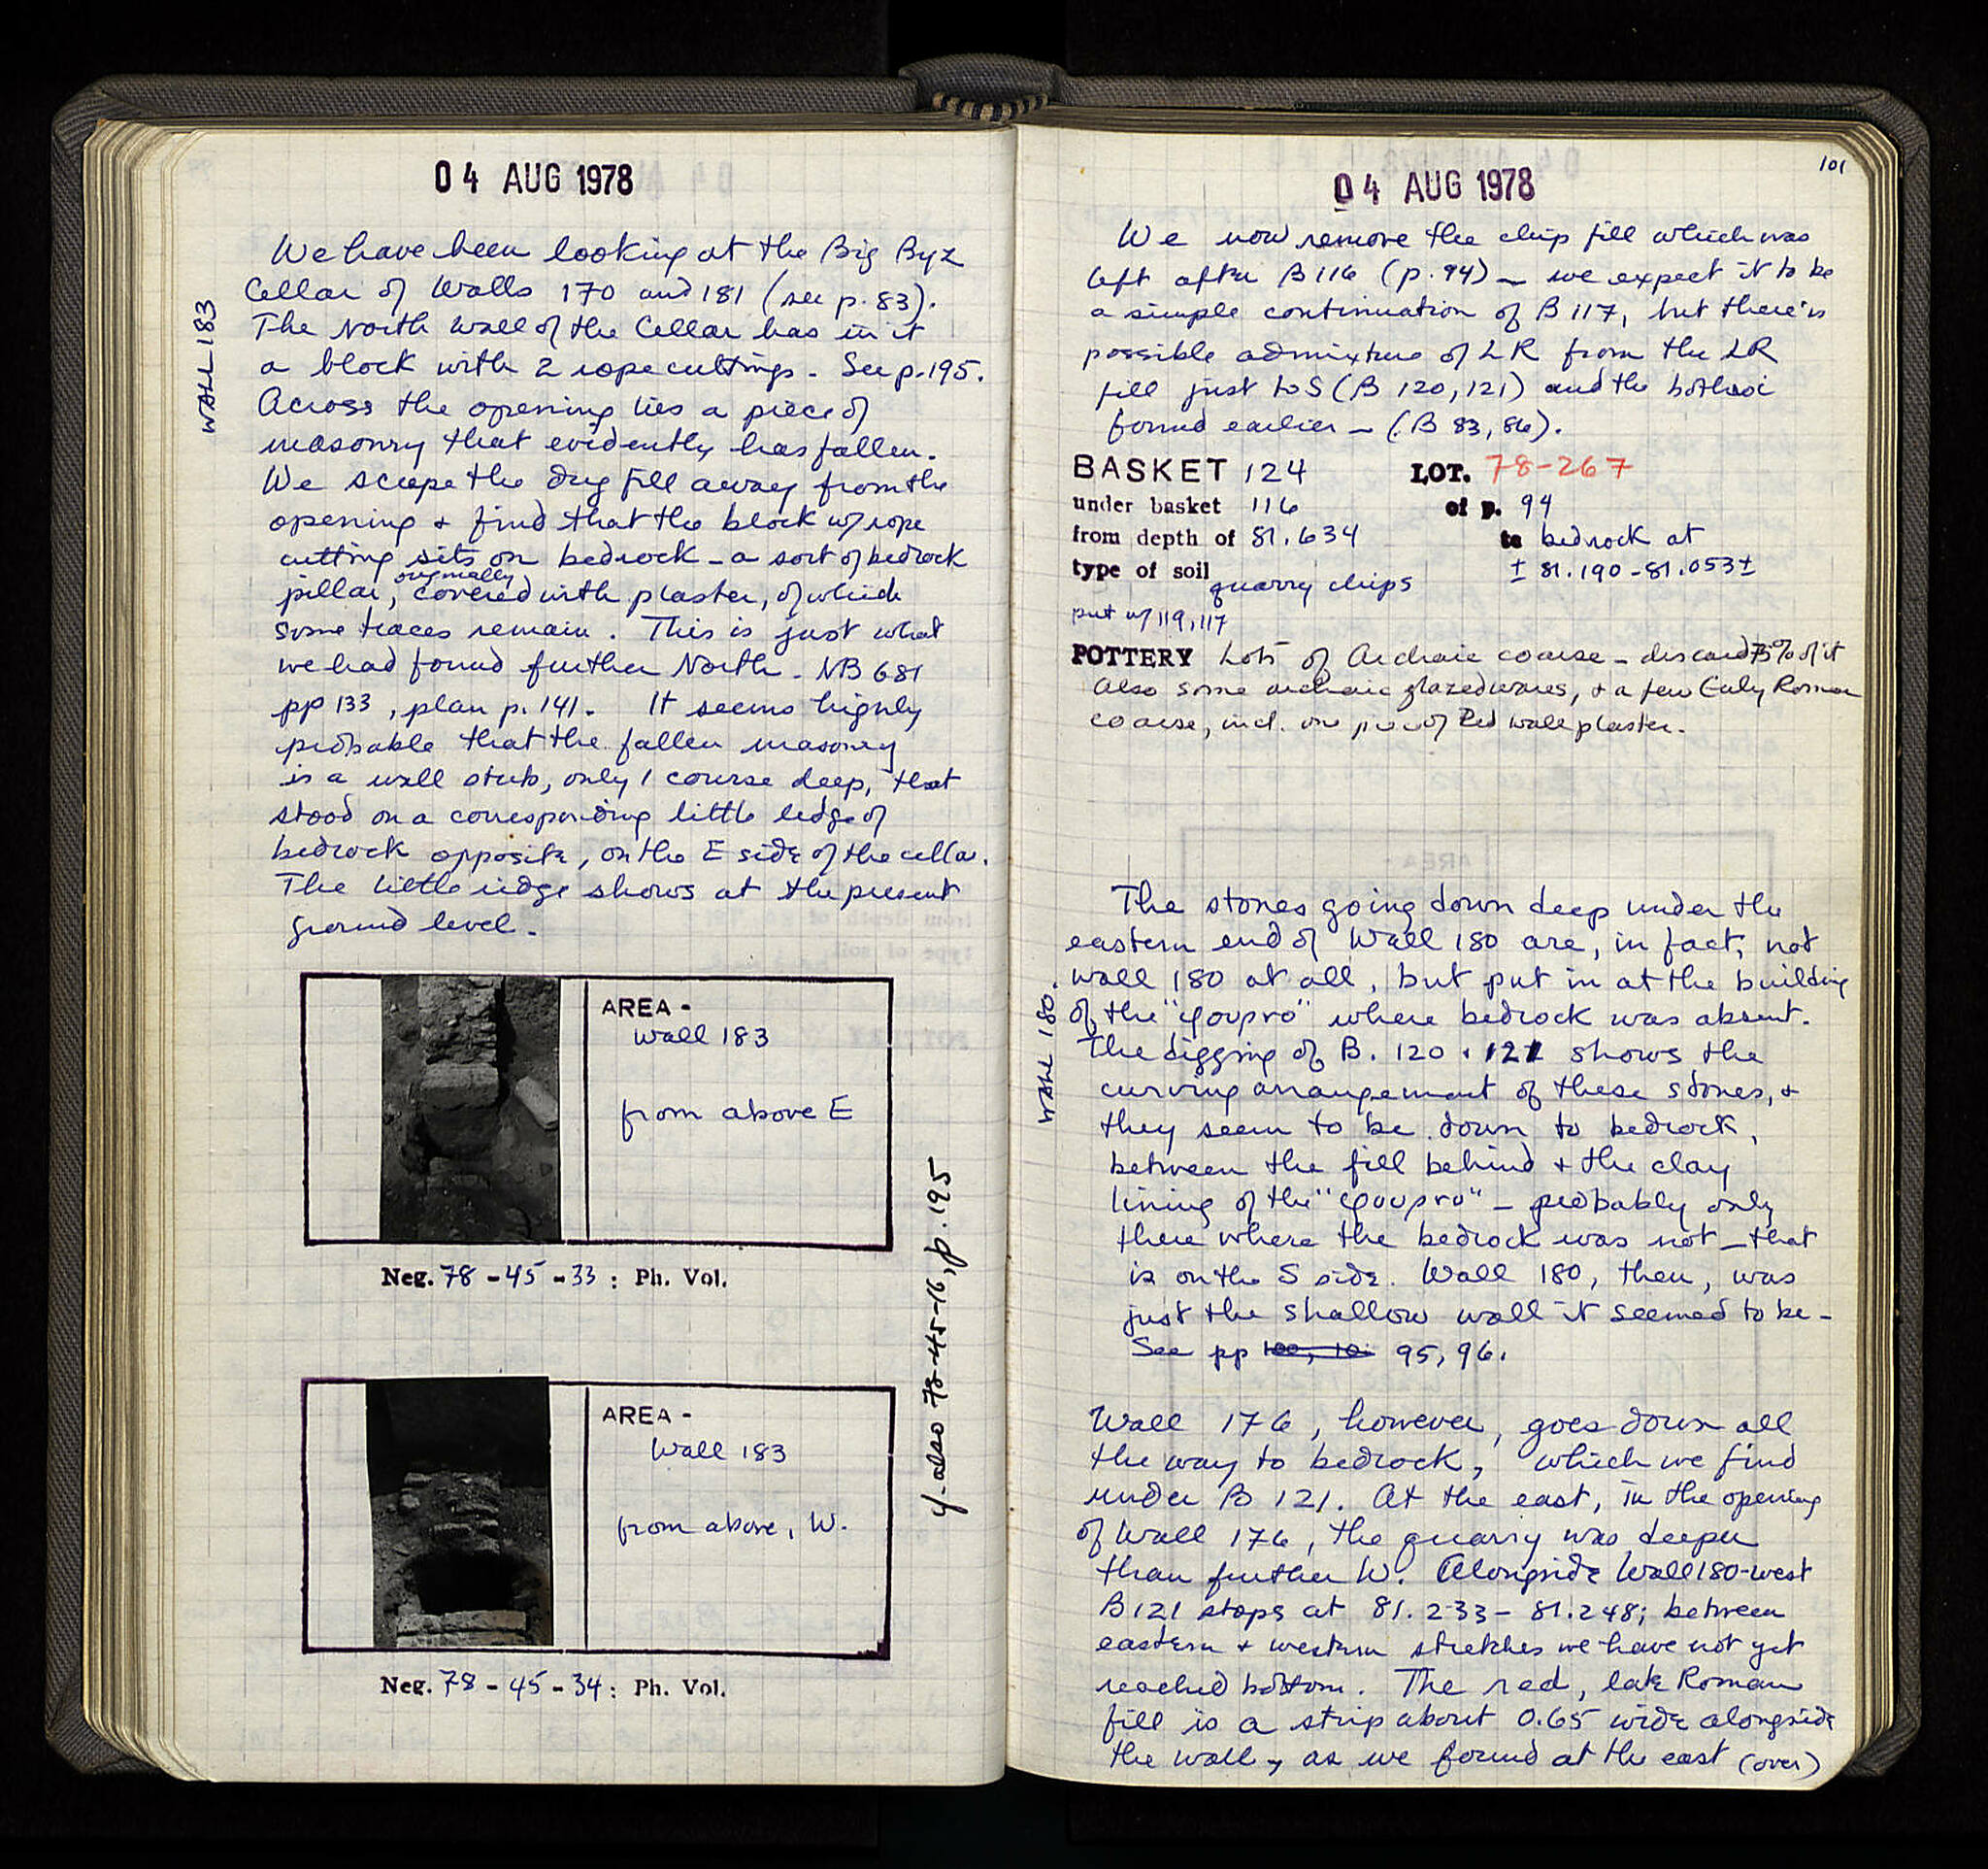 04 AUG 1978
WALL 183
We have been looking at the Big Byz
Cellar of Walls 170 and 181 (see p. 83).
The North Wall of the Cellar has in it
a block with 2 rope cuttings - See p. 195.
Across the opening lies a piece of
masonry that evidently has fallen.
We scrape the dug fill away from the
opening + find that the block w/ rope
cutting sits on bedrock - a sort of bedrock
pillar, originally covered with plaster, of which
some traces remain. This is just what
we had found further North - NB 681
pp 133, plan p. 141. It seems highly
probable that the fallen masonry
is a wall stub, only 1 course deep, that
stood on a corresponding little ledge of
bedrock opposite, on the E side of the cellar.
The little ridge shows at the present
ground level.
AREA -
Wall 183
from above E
Neg. 78 - 45 - 33 : Ph. Vol.
AREA -
Wall 183
from above, W.
Neg. 78 - 45 - 34 : Ph. Vol.
cf. also 78-45-16, p. 195
101
04 AUG 1978
We now remove the chip fill which was
left after B 116 (p. 94) - we expect it to be
a simple continuation of B 117, but there is
possible admixture of LR from the LR
fill just to S (B 120, 121) and the bothroi
found earlier - (B 83, 86).
BASKET 124 LOT. 78-267
under basket 116 of p. 94
from depth of 81.634 to bedrock at
± 81.190 - 81.053 ±
type of soil quarry chips
put w/ 119, 117
POTTERY Lots of Archaic coarse - discard 75% of it
Also some archaic glazed wares, + a few Early Roman
coarse, incl. one piece of Red wall plaster.
WALL 180.
The stones going down deep under the
eastern end of Wall 180 are, in fact, not
wall 180 at all, but put in at the building
of the "φουρνο" where bedrock was absent.
The digging of B. 120 + 121 shows the
curving arrangement of these stones, +
they seem to be down to bedrock,
between the fill behind + the clay
lining of the "φουρνο" - probably only
there where the bedrock was not - that
is on the S side. Wall 180, then, was
just the shallow wall it seemed to be -
See pp 95, 96.
Wall 176, however, goes down all
the way to bedrock, which we find
under B 121. At the east, in the opening
of Wall 176, the quarry was deeper
than further W. Alongside Wall 180-west
B 121 stops at 81.233 - 81.248; between
eastern + western stretches we have not yet
reached bottom. The red, late Roman
fill is a strip about 0.65 wide alongside
the wall, as we found at the east (over)